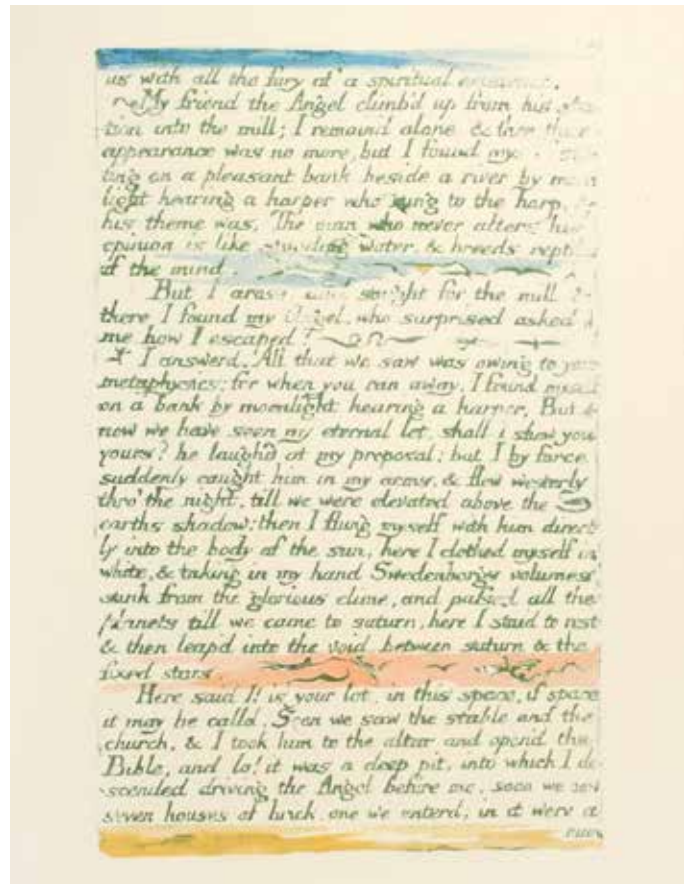 us with all the fury of a spiritual existence.
My friend the Angel climb'd up from his sta-
tion into the mill; I remain'd alone & then this
appearance was no more, but I found my sit-
ting on a pleasant bank beside a river by moon
light hearing a harper who sung to the harp, &
his theme was, The man who never alters his
opinion is like standing water, & breeds reptiles
of the mind.
But I arose and sought for the mill &
there I found my Angel, who surprised asked
me how I escaped?
I answerd, All that we saw was owing to your
metaphysics; for when you ran away, I found myself
on a bank by moonlight hearing a harper, But
now we have seen my eternal lot, shall i shew you
yours? he laughd at my proposal; but I by force
suddenly caught him in my arms, & flew westerly
thro' the night, till we were elevated above the
earths shadow: then I flung myself with him direct-
ly into the body of the sun, here I clothed myself in
white, & taking in my hand Swedenborgs volumes
sunk from the glorious clime, and passed all the
planets till we came to saturn, here I staid to rest
& then leap'd into the void, between saturn & the
fixed stars.
Here said I! is your lot, in this space, if space
it may be calld, Soon we saw the stable and the
church, & I took him to the altar and open'd the
Bible, and lo! it was a deep pit, into which I de-
scended driving the Angel before me, soon we saw
seven houses of brick, one we enterd; in it were a